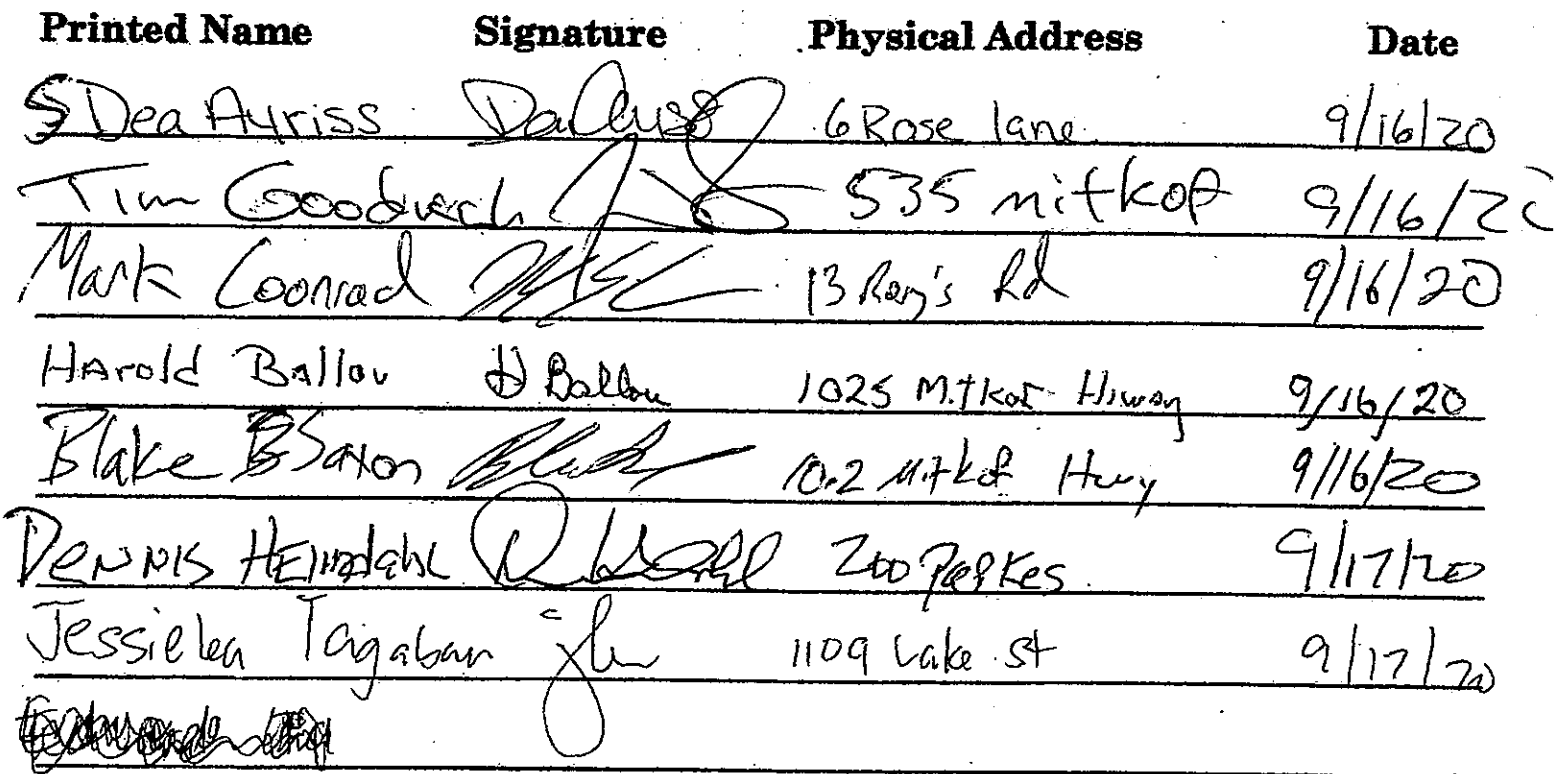 Printed Name Signature Physical Address Date
Dea Ayriss 6 Rose lane 9/16/20
Tim 535 mitkof 9/16/20
Mark Coonrad 13 Rory's Rd 9/16/20
HArold BAllou H Ballou 1025 Mitkof Hiway 9/16/20
Blake Saxon 10.2 Mitkof Hwy 9/16/20
DENNIS 200 9/17/20
Jessielen Tagaban 1109 Lake St 9/17/20